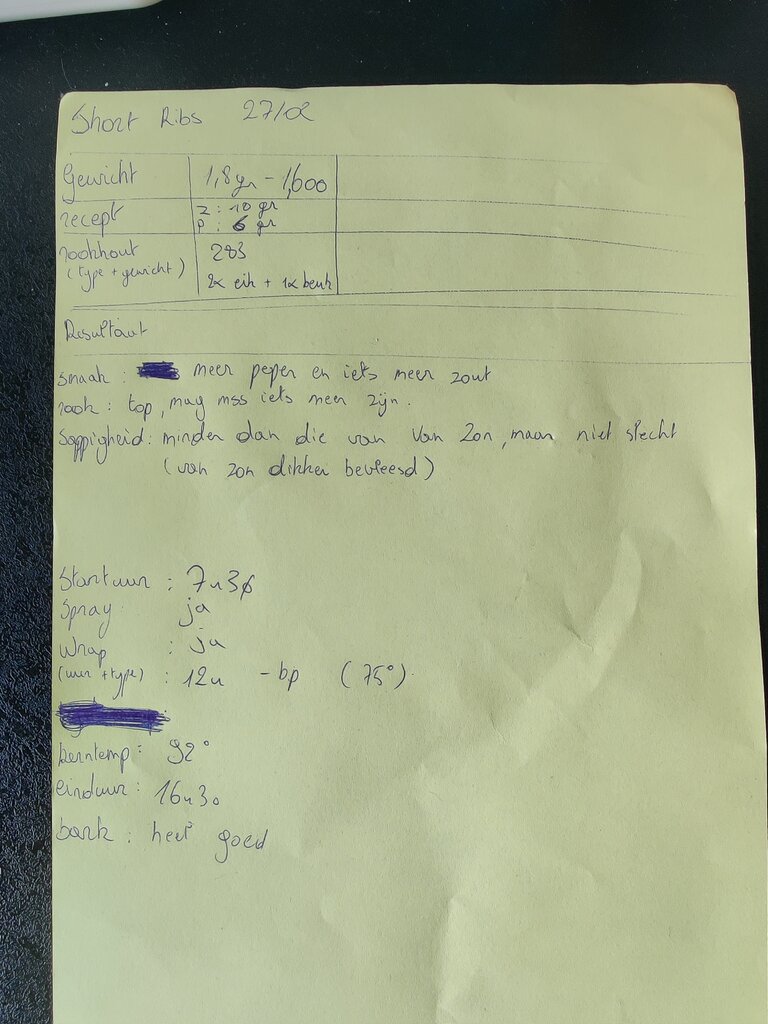 Short Ribs 27/02
Gewicht 1,8 gr - 1,600
recept z : 10 gr
p : 6 gr
rookhout 283
(type + gewicht) 2x eik + 1x beuk
Resultaat
smaak : meer peper en iets meer zout
rook : top, mag mss iets meer zijn.
Sappigheid : minder dan die van Van Zon, maar niet slecht
(van zon dikker bevleesd)
Startuur : 7u30
Spray : ja
Wrap : ja
(uur + type) : 12u - bp (75°)
kerntemp : 92°
einduur : 16u30
bark : heel goed